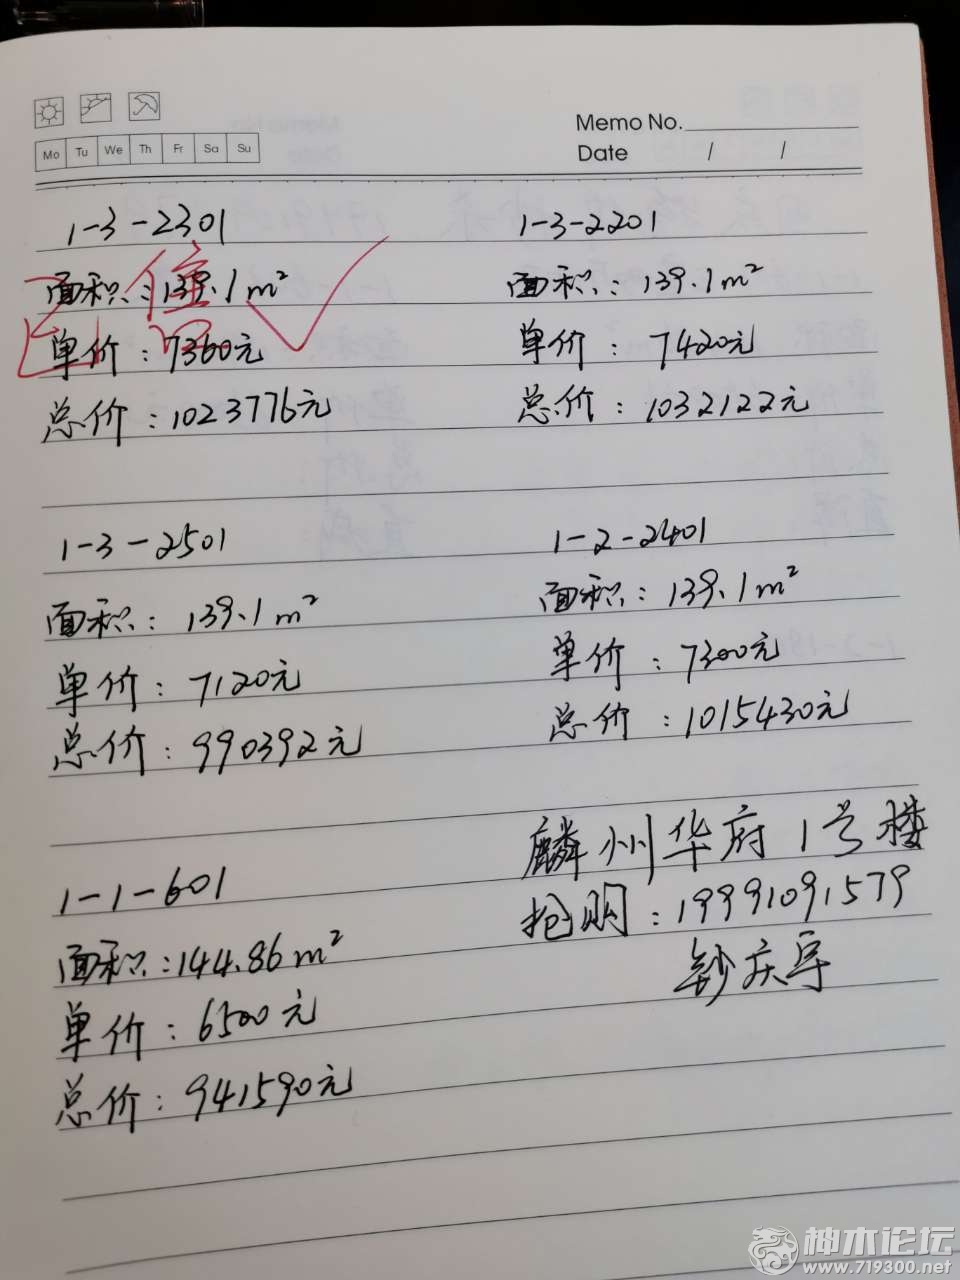 Memo No.
Mo Tu We Th Fr Sa Su
Date / /
1-3-2301
面积:139.1m²
单价:7360元
总价:1023776元
1-3-2201
面积:139.1m²
单价:7420元
总价:1032122元
1-3-2501
面积:139.1m²
单价:7120元
总价:990392元
1-2-2401
面积:139.1m²
单价:7300元
总价:1015430元
1-1-601
面积:144.86m²
单价:6500元
总价:941590元
麟州华府1号楼
抢购:19991091579
神木论坛
www.719300.net